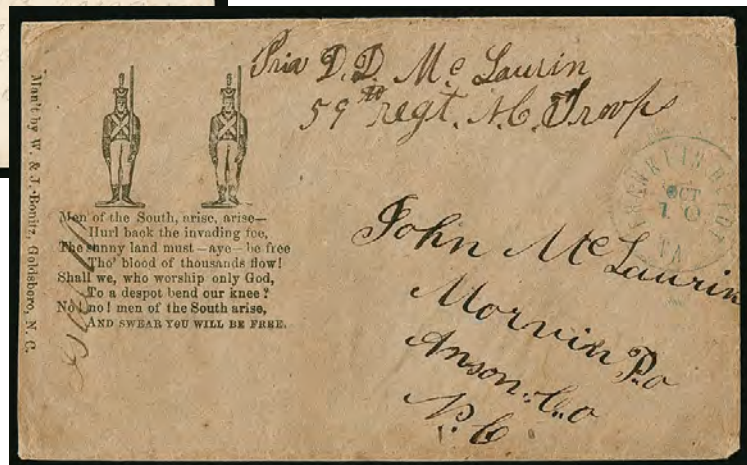 Priv D. D. Mc Laurin
59th regt. N.C. Troops
Man't by W. & J. Bonitz, Goldsboro, N. C.
Men of the South, arise, arise—
Hurl back the invading foe,
The sunny land must—aye—be free
Tho' blood of thousands flow!
Shall we, who worship only God,
To a despot bend our knee?
No! no! men of the South arise,
AND SWEAR YOU WILL BE FREE.
FRANKLIN DEPOT
OCT
10
VA
John McLaurin
Morvin P.o
Anson. Co
N. C